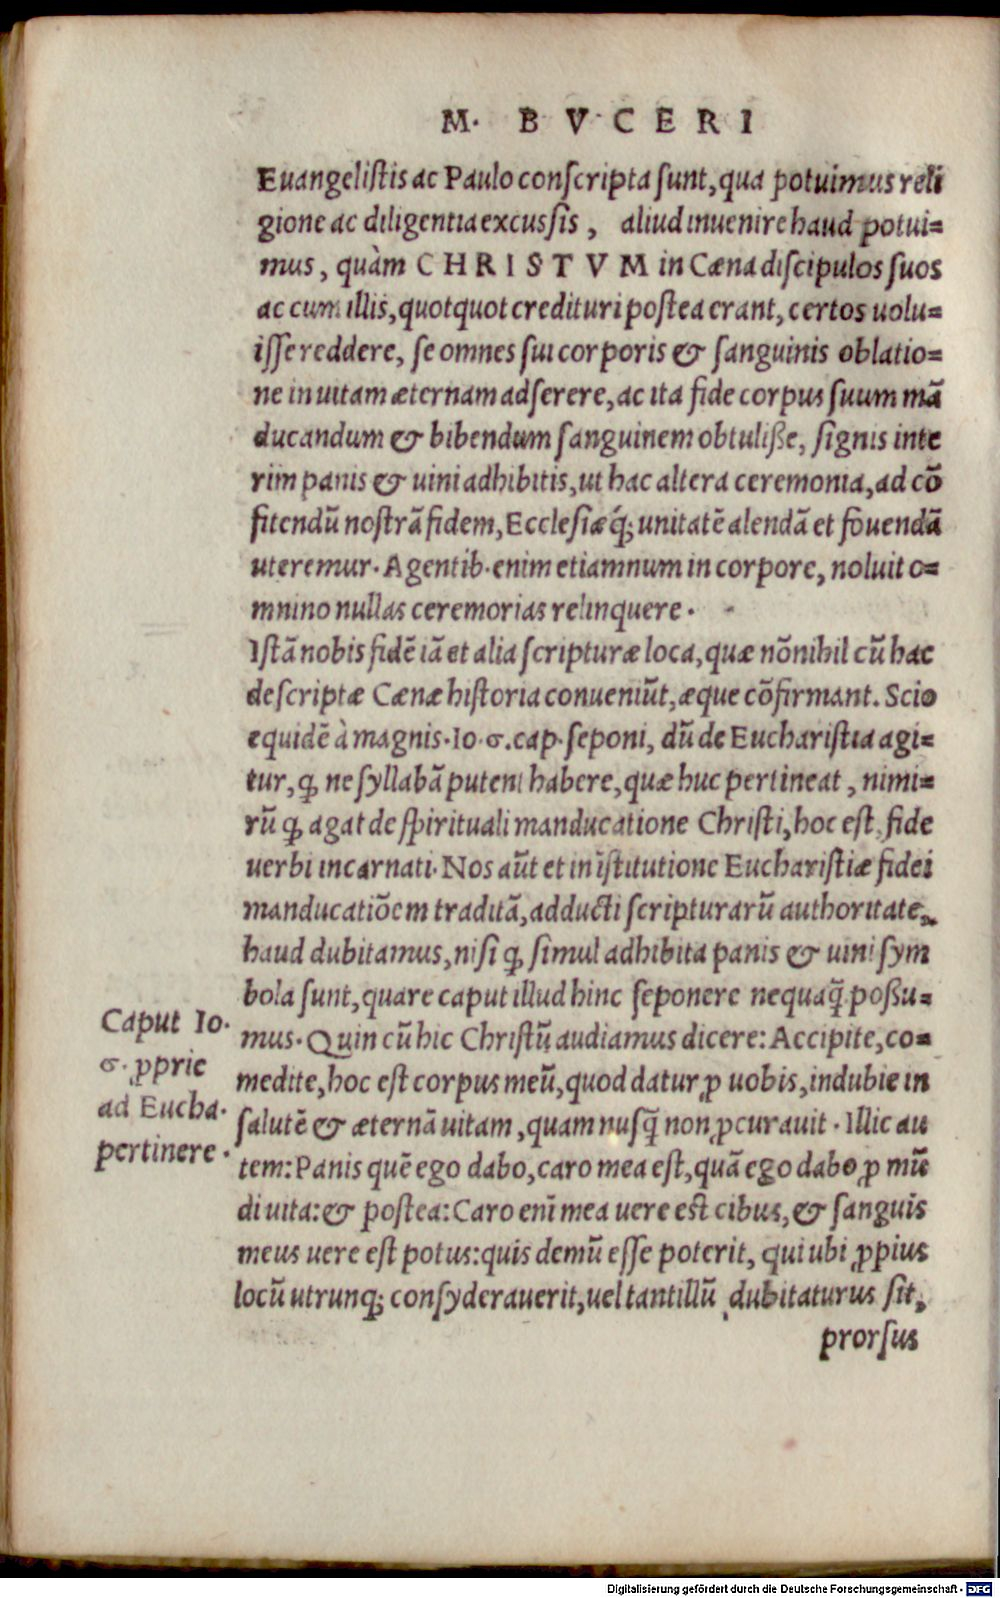 M. BVCERI
Euangelistis ac Paulo conscripta sunt, qua potuimus reli
gione ac diligentia excussis, aliud inuenire haud potui=
mus, quàm CHRISTVM in Cæna discipulos suos
ac cum illis, quotquot credituri postea erant, certos uolu=
isse reddere, se omnes sui corporis & sanguinis oblatio=
ne in uitam æternam adserere, ac ita fide corpus suum mā
ducandum & bibendum sanguinem obtulisse, signis inte
rim panis & uini adhibitis, ut hac altera ceremonia, ad cō
fitendū nostrā fidem, Ecclesiæq́; unitatē alendā et fouendā
uteremur. Agentib. enim etiamnum in corpore, noluit o=
mnino nullas ceremorias relinquere.
Istā nobis fidē iā et alia scripturæ loca, quæ nōnihil cū hac
descriptæ Cænæ historia conueniūt, æque cōfirmant. Scio
equidē à magnis. Io. 6. cap. seponi, dū de Eucharistia agi=
tur, ꝙ ne syllabā putent habere, quæ huc pertineat, nimi=
rū ꝙ agat de spirituali manducatione Christi, hoc est, fide
uerbi incarnati. Nos aūt et in īstitutione Eucharistiæ fidei
manducatiōem traditā, adducti scripturarū authoritate,
haud dubitamus, nisi ꝙ simul adhibita panis & uini sym
bola sunt, quare caput illud hinc seponere nequaq̄ possu=
mus. Quin cū hic Christū audiamus dicere: Accipite, co=
medite, hoc est corpus meū, quod datur ꝓ uobis, indubie in
salutē & æternā uitam, quam nusq̄ non ꝓcurauit. Illic au
tem: Panis quē ego dabo, caro mea est, quā ego dabo ꝓ mū
di uita: & postea: Caro enī mea uere est cibus, & sanguis
meus uere est potus: quis demū esse poterit, qui ubi ꝓpius
locū utrunq; consyderauerit, uel tantillū dubitaturus sit,
prorsus
Caput Io.
6. ꝓprie
ad Eucha.
pertinere.
Digitalisierung gefördert durch die Deutsche Forschungsgemeinschaft - DFG